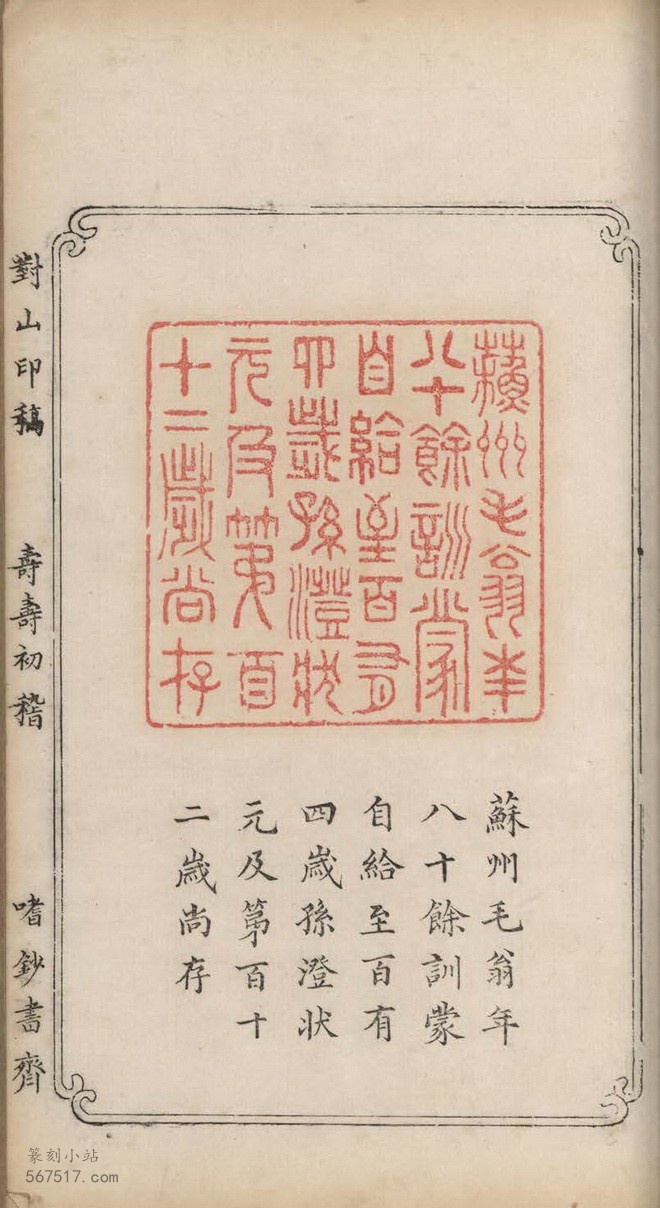 蘇州毛翁年
八十餘訓蒙
自給至百有
四歲孫澄狀
元及第百
十二歲尚存
蘇州毛翁年
八十餘訓蒙
自給至百有
四歲孫澄狀
元及第百十
二歲尚存
對山印稿 壽壽初稽 嗜鈔書齋
篆刻小站
567517.com